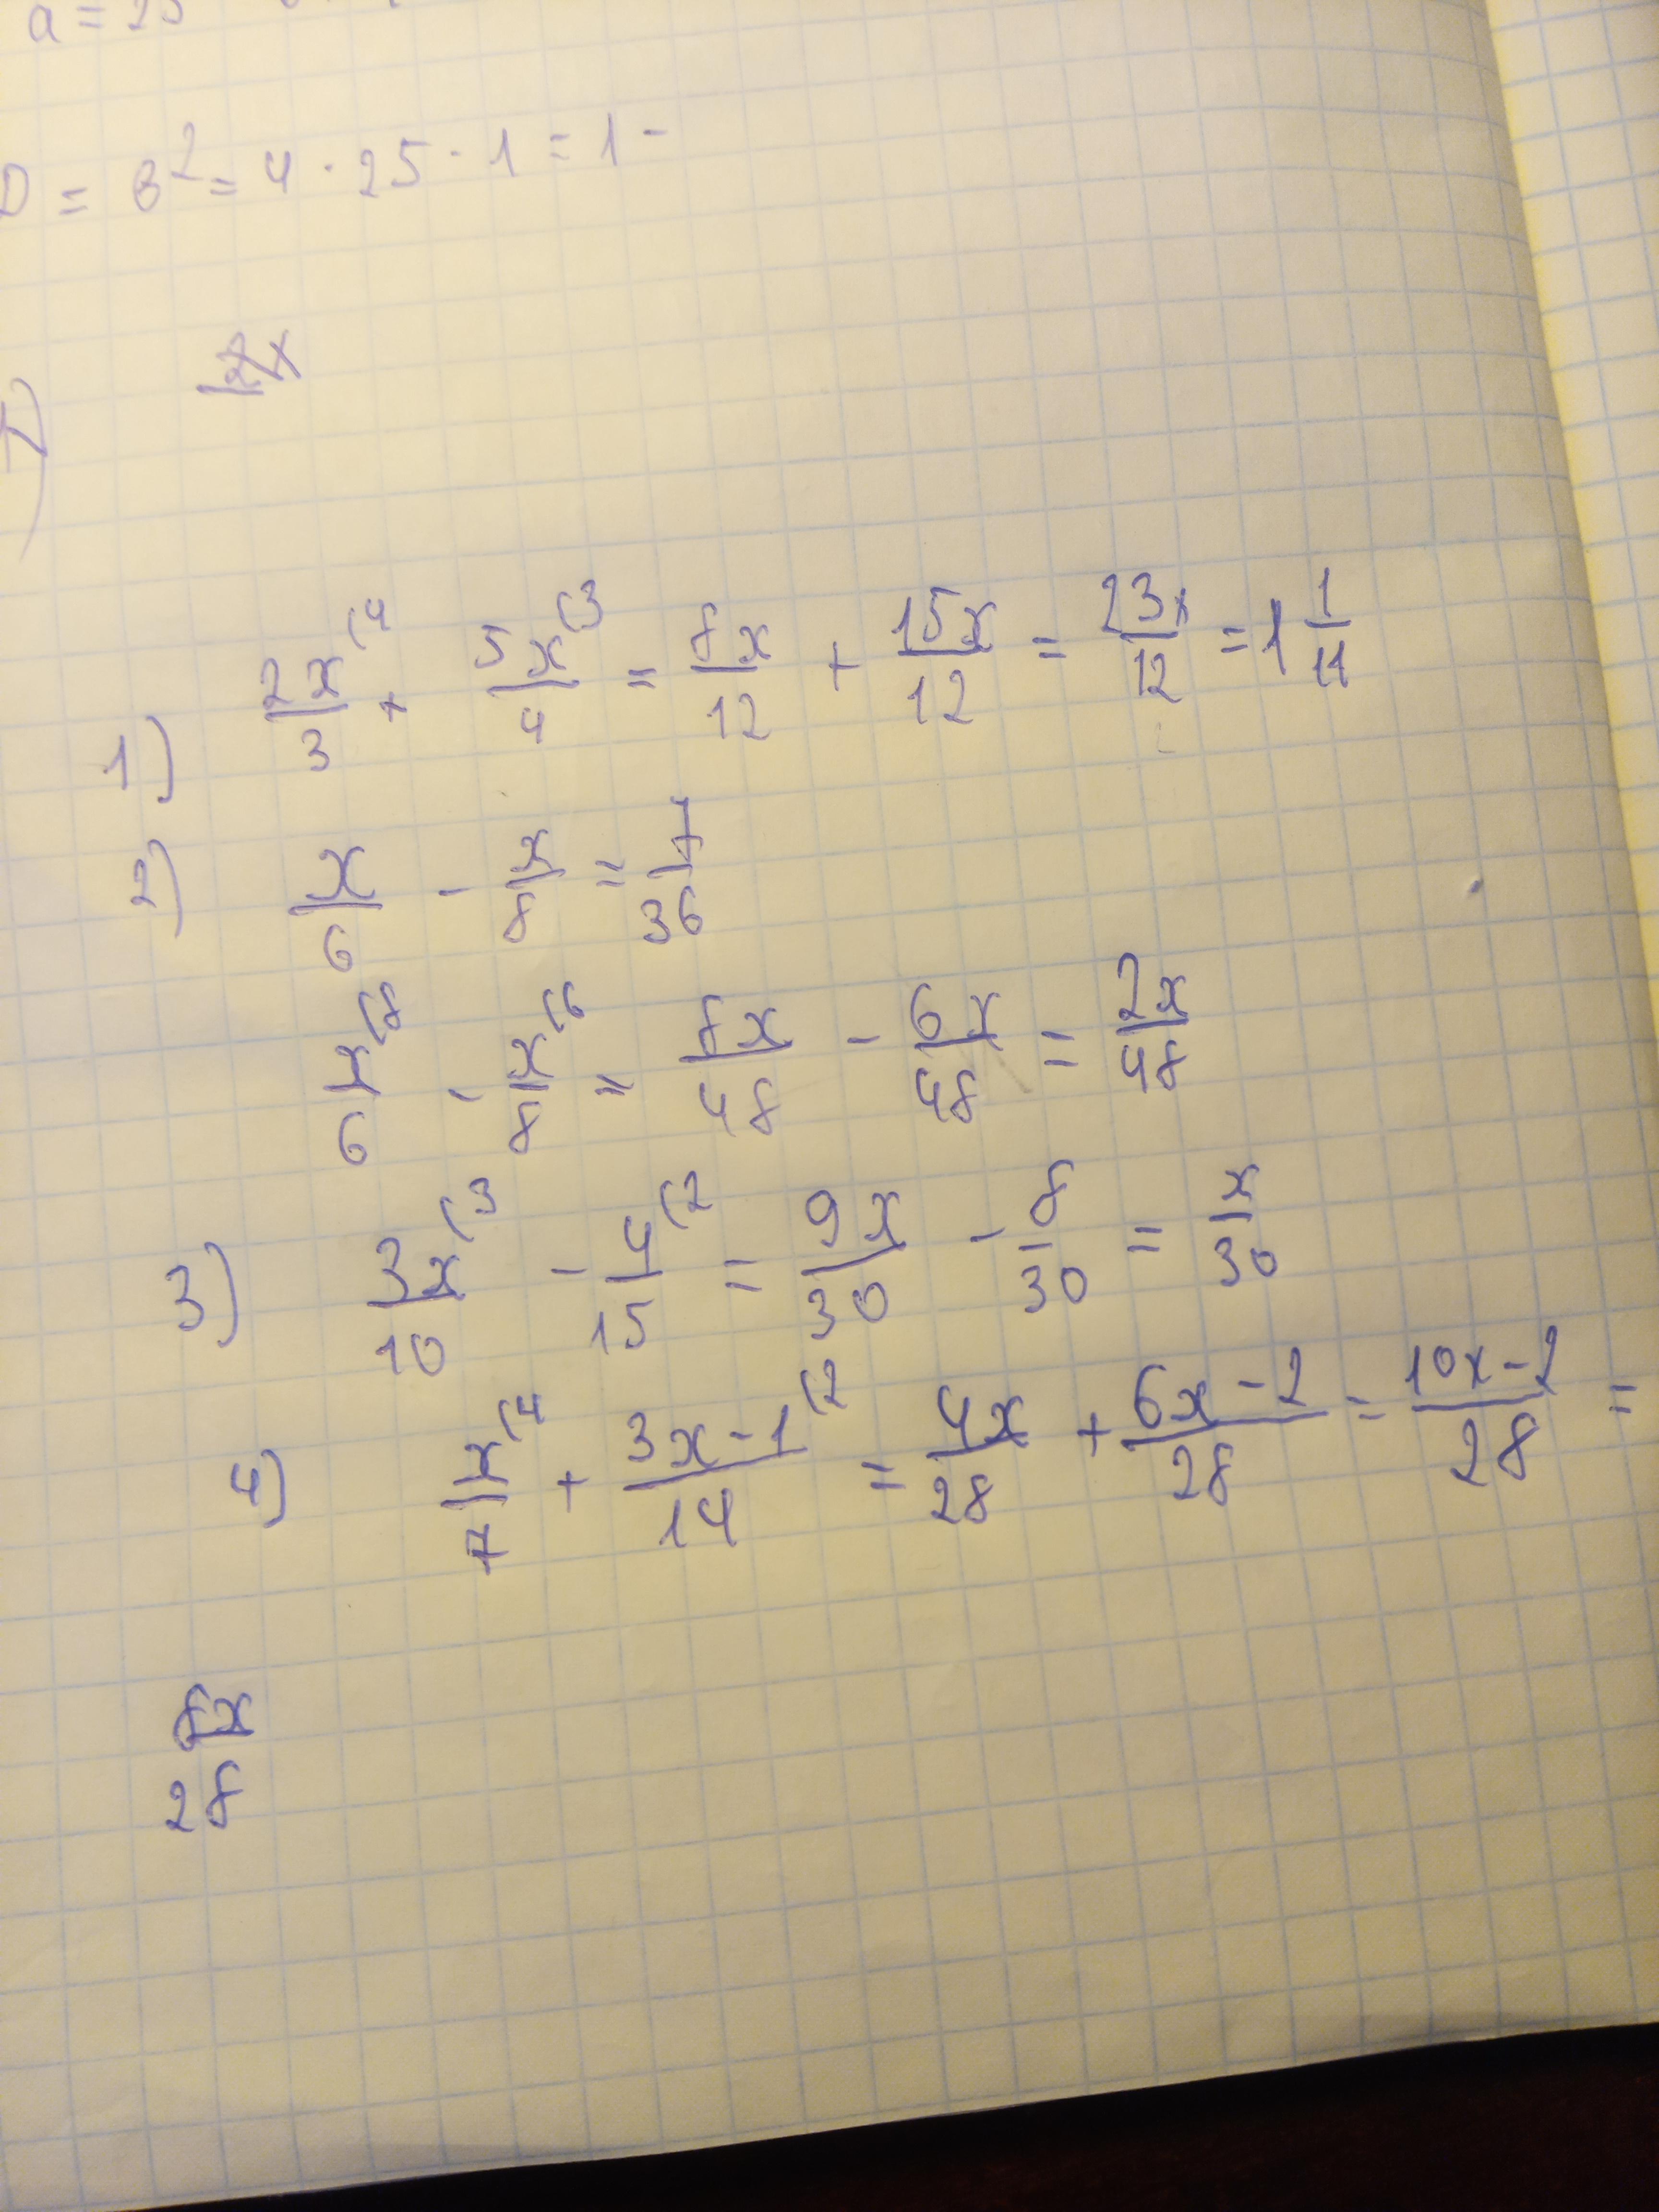 a = 25
D = в² = 4 · 25 · 1 = 1 -
1) 2x/3 (4 + 5x/4 (3 = 8x/12 + 15x/12 = 23x/12 = 1 1/11
2) x/6 - x/8 = 7/36
x/6 (8 - x/8 (6 = 8x/48 - 6x/48 = 2x/48
3) 3x/10 (3 - 4/15 (2 = 9x/30 - 8/30 = x/30
4) x/7 (4 + 3x-1/14 (2 = 4x/28 + 6x-2/28 = 10x-2/28 =
8x/28